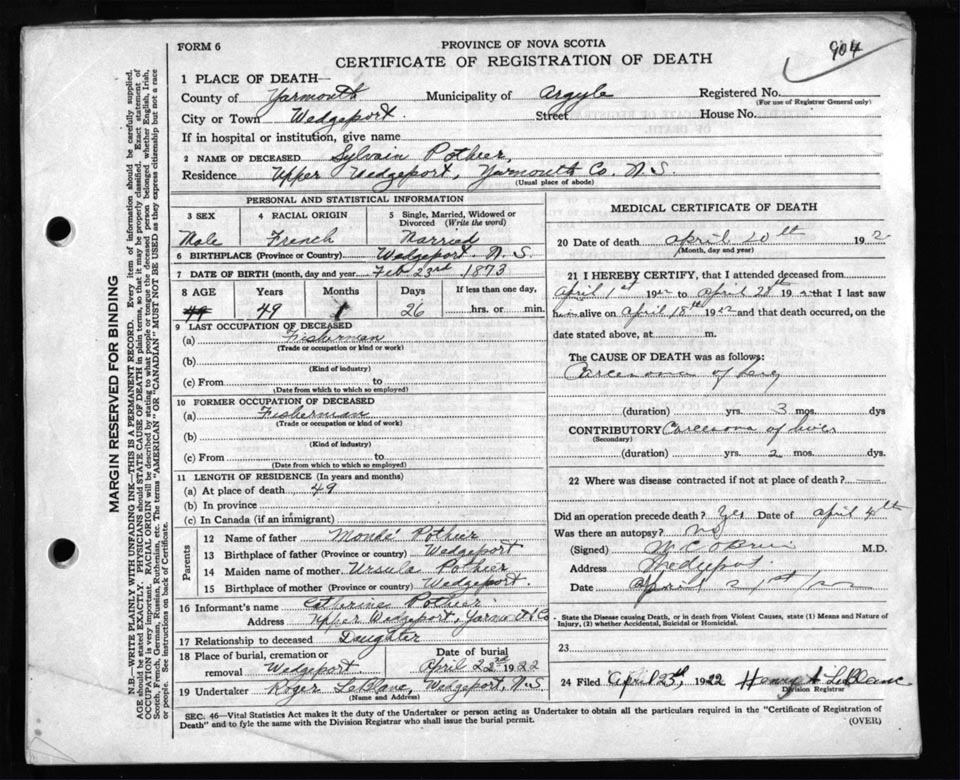 904
FORM 6
PROVINCE OF NOVA SCOTIA
CERTIFICATE OF REGISTRATION OF DEATH
1 PLACE OF DEATH—
County of Yarmouth Municipality of Argyle Registered No.
(For use of Registrar General only)
City or Town Wedgeport. Street House No.
If in hospital or institution, give name
2 NAME OF DECEASED Sylvain Pothier,
Residence Upper Wedgeport, Yarmouth Co. N.S.
(Usual place of abode)
MARGIN RESERVED FOR BINDING
N.B.—WRITE PLAINLY WITH UNFADING INK—THIS IS A PERMANENT RECORD. Every item of information should be carefully supplied.
AGE should be stated EXACTLY. PHYSICIANS should STATE CAUSE OF DEATH in plain terms, so that it may be properly classified. Exact statement of
OCCUPATION is very important. RACIAL ORIGIN will be described by stating to what people or tongue the deceased person belonged, whether English, Irish,
Scotch, French, German, Russian, Ruthenian, etc. The terms "AMERICAN" OR "CANADIAN" MUST NOT BE USED as they express citizenship but not a race
or people. See instructions on back of Certificate.
PERSONAL AND STATISTICAL INFORMATION
3 SEX 4 RACIAL ORIGIN 5 Single, Married, Widowed or
Divorced (Write the word)
Male French Married
6 BIRTHPLACE (Province or Country) Wedgeport. N.S.
7 DATE OF BIRTH (month, day and year) Feb 23rd 1873
8 AGE Years Months Days If less than one day,
49 49 1 26 hrs. or min.
9 LAST OCCUPATION OF DECEASED
(a) Fisherman
(Trade or occupation or kind or work)
(b)
(Kind of industry)
(c) From to
(Date from which to which so employed)
10 FORMER OCCUPATION OF DECEASED
(a) Fisherman
(Trade or occupation or kind of work)
(b)
(Kind of industry)
(c) From to
(Date from which to which so employed)
11 LENGTH OF RESIDENCE (In years and months)
(a) At place of death 49
(b) In province
(c) In Canada (if an immigrant)
Parents
12 Name of father Mondé Pothier
13 Birthplace of father (Province or country) Wedgeport
14 Maiden name of mother Ursula Pothier
15 Birthplace of mother (Province or country) Wedgeport.
16 Informant's name Pothier
Address Upper Wedgeport, Yarmo
17 Relationship to deceased Daughter
18 Place of burial, cremation or Date of burial
removal Wedgeport. April 22nd 1922
19 Undertaker Roger LeBlanc, Wedgeport, N.S.
(Name and Address)
MEDICAL CERTIFICATE OF DEATH
20 Date of death april 20th 192
(Month, day and year)
21 I HEREBY CERTIFY, that I attended deceased from
april 1st 1922 to april 19 that I last saw
him alive on april 18th 1922 and that death occurred, on the
date stated above, at m.
The CAUSE OF DEATH was as follows:
Carcinoma of
(duration) yrs. 3 mos. dys
CONTRIBUTORY Carcinoma of liver
(Secondary)
(duration) yrs. 2 mos. dys.
22 Where was disease contracted if not at place of death?
Did an operation precede death? Yes Date of april
Was there an autopsy? No
(Signed) M.D.
Address Wedgeport
Date April 21st/22
- State the Disease causing Death, or in death from Violent Causes, state (1) Means and Nature of
Injury, (2) whether Accidental, Suicidal or Homicidal.
23
24 Filed april 25th, 1922 Henry A. LeBlanc
Division Registrar
SEC. 46—Vital Statistics Act makes it the duty of the Undertaker or person acting as Undertaker to obtain all the particulars required in the "Certificate of Registration of
Death" and to fyle the same with the Division Registrar who shall issue the burial permit.
(OVER)